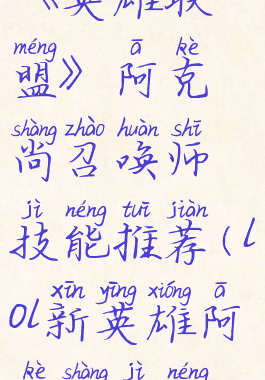 《英雄联
méng ā kè
盟》 阿克
shàng zhào huàn shī
尚召唤师
jì néng tuī jiàn
技能推荐（l
xīn yīng xióng ā
ol新英雄阿
kè shàng jì néng